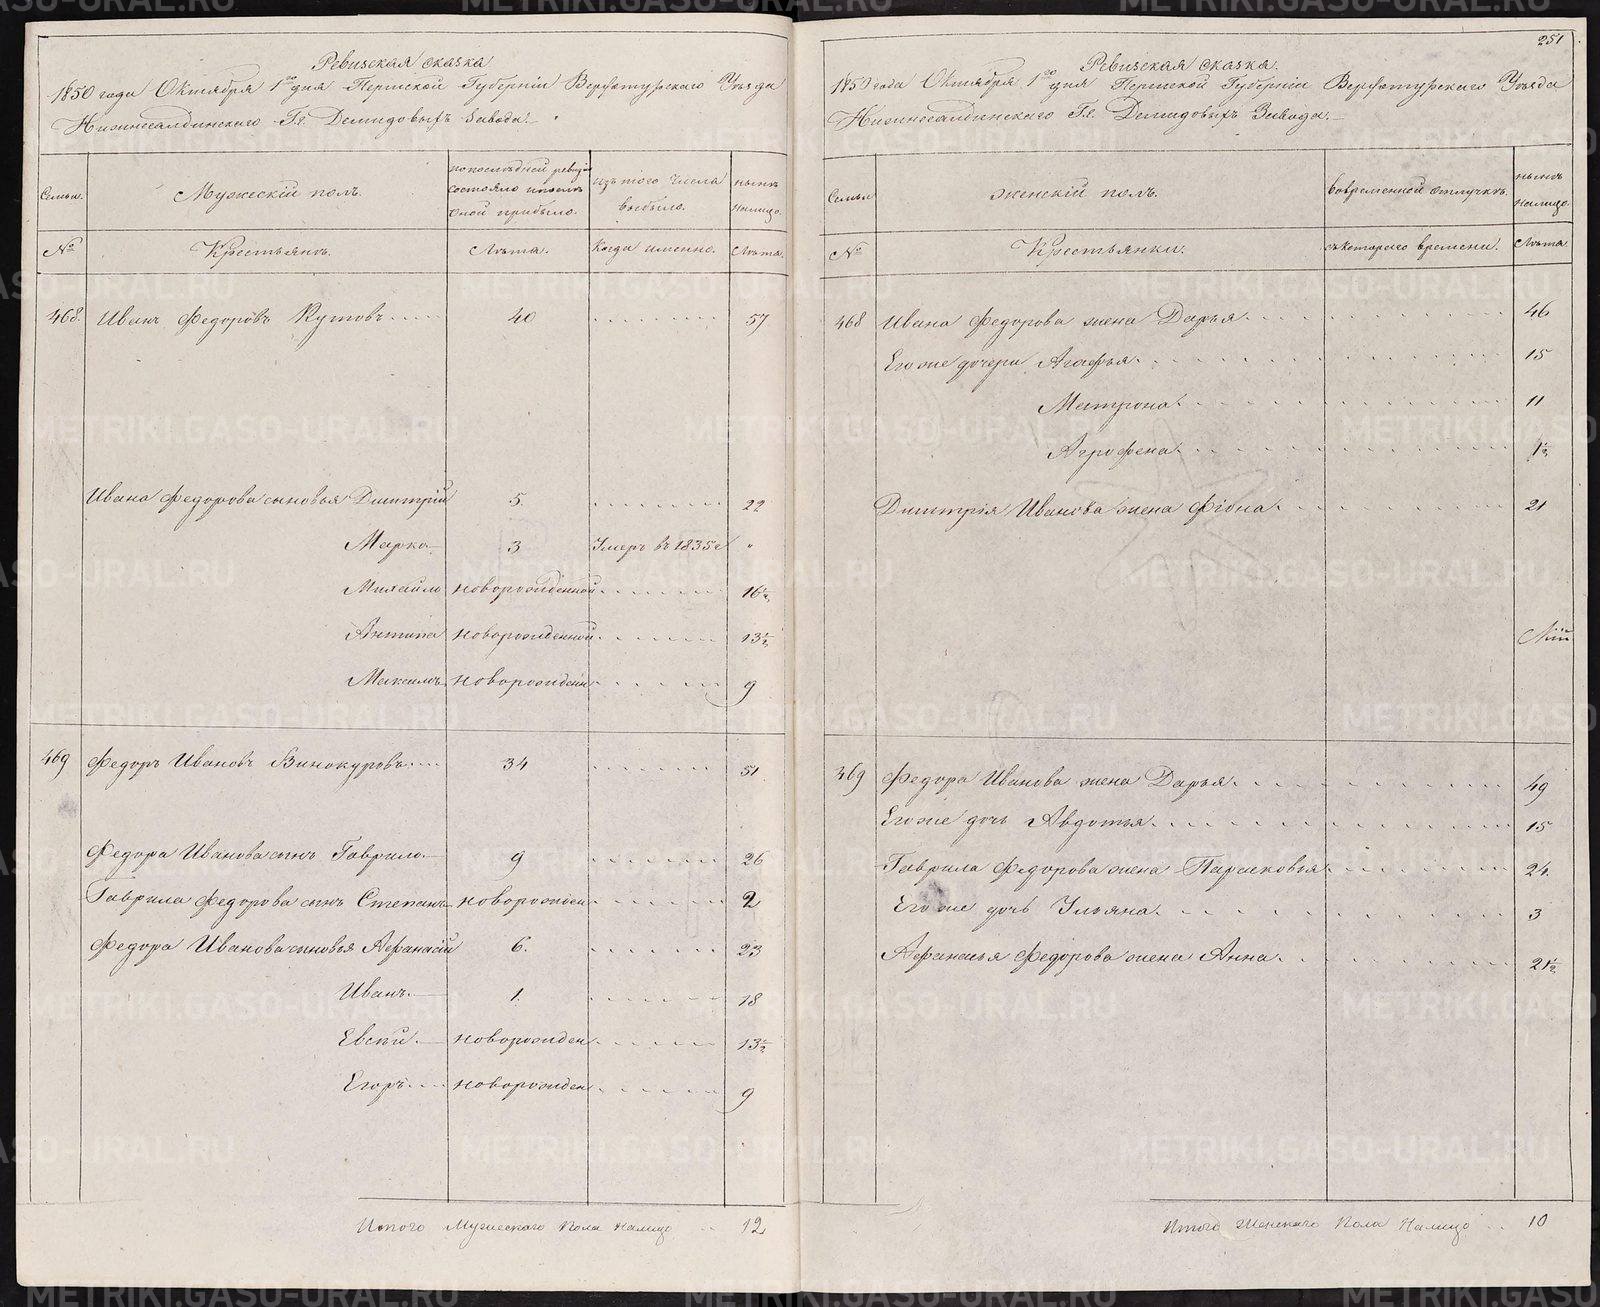 Ревизская сказка
1850 года Октября 1го дня Пермской Губерніи Верхотурскаго Уѣзда
Нижнесалдинскаго Гг. Демидовыхъ Завода.
Семьи. Мужескій полъ. по последней ревизіи состояло и после оной прибыло. изъ того числа выбыло. нынѣ налицо.
№ Крестьянъ. Лѣта. Когда именно. Лѣта.
468. Иванъ Федоровъ Кутовъ 40 57
Ивана Федорова сыновья Дмитрій 5. 22
Марко 3 Умеръ въ 1835 г. "
Михайло новорожденной 16½
Антипа новорожденной 13½
Максимъ новорожден 9
469 Федоръ Ивановъ Винокуровъ 34 51
Федора Иванова сынъ Гаврило 9 26
Гаврила Федорова сынъ Степанъ новорожден 2
Федора Иванова сыновья Афанасій 6. 23
Иванъ. 1. 18
Евсій. новорожден 13½
Егоръ новорожден 9
Итого Мужескаго Пола Налицо 12
251
Ревизская сказка.
1850 года Октября 1го дня Пермской Губерніи Верхотурскаго Уѣзда
Нижнесалдинскаго Гг. Демидовыхъ Завода.
Семьи Женскій полъ. во временной отлучкѣ. нынѣ налицо.
№ Крестьянки. съ котораго времени. Лѣта.
468 Ивана Федорова жена Дарья 46
Его же дочери Агафья 15
Матрона 11
Агрофена 1½
Дмитрія Иванова жена Фіона 21
469 Федора Иванова жена Дарья 49
Его же дочь Авдотья 15
Гаврила Федорова жена Парасковья 24
Его же дочь Ульяна 3
Афанасья Федорова жена Анна 21½
Итого Женскаго Пола Налицо 10
METRIKI.GASO-URAL.RU